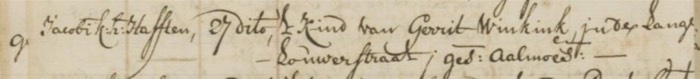 9. Jacobi k: h: Hafften, 27 dito, 't Kind van Gerrit Winkink, in de Lange
— Louwerstraat, ges: aalmoest: —